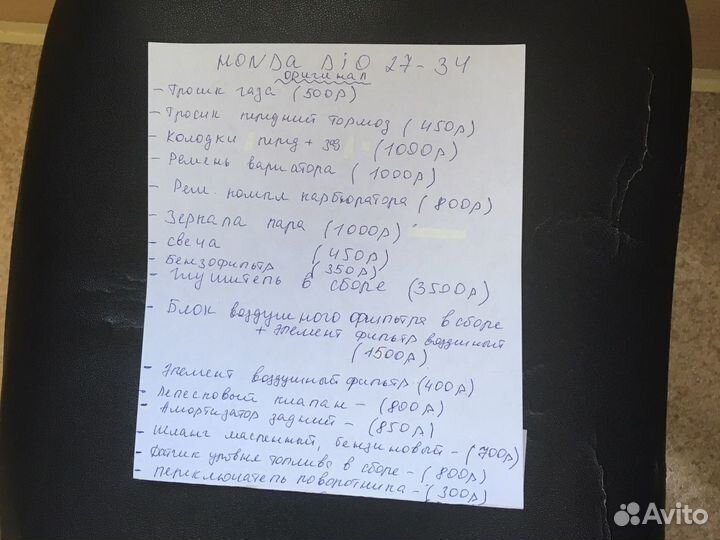 HONDA DiO 27-34
оригинал
- Тросик газа (500р)
- Тросик передний тормоз (450р)
- Колодки перед + зад (1000р)
- Ремень вариатора (1000р)
- Рем. компл карбюратора (800р)
- Зеркала пара (1000р)
- свеча (450р)
- Бензофильтр (350р)
- Глушитель в сборе (3500р)
- Блок воздушного фильтра в сборе
+ Элемент фильтр воздушный
(1500р)
- Элемент воздушный фильтр (400р)
- Лепестковый клапан - (800р)
- Амортизатор задний - (850р)
- Шланг масленный, бензиновый - (700р)
- Датчик уровня топлива в сборе - (800р)
- переключатель поворотника - (300р)
Avito